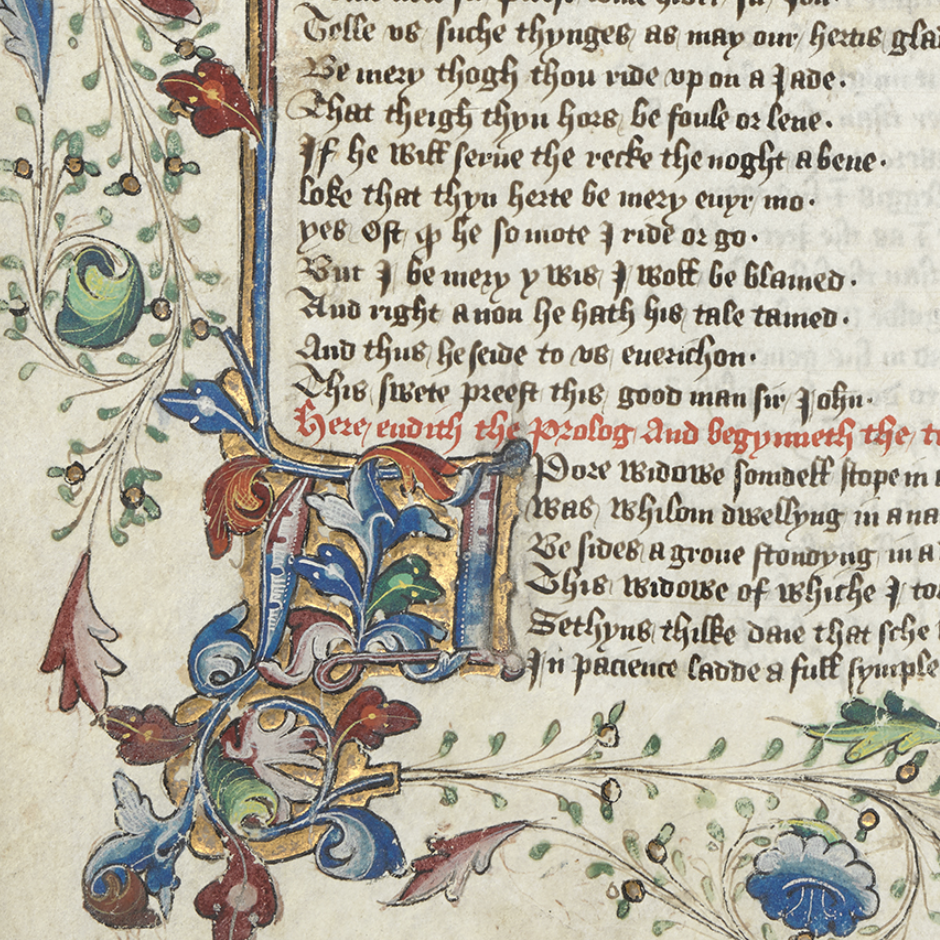 Telle vs suche thynges as may our hertis gla
Be mery thogh thou ride vp on a Jade
That theigh thyn hors be foule or lene
If he will serue the recke the noght a bene
loke that thyn herte be mery euyr mo
yes Ost he so mote I ride or go
But I be mery y wis I woll be blamed
And right a non he hath his tale tamed
And thus he seide to vs euerichon
This swete preest this good man sir John
Here endith the prolog And begynneth the t
Pore widowe somdell stope in
was whilom dwellyng in a na
Be sides a groue stondyng in a
This widowe of whiche I to
Sethyns thilke daie that sche
In pacience ladde a full symple